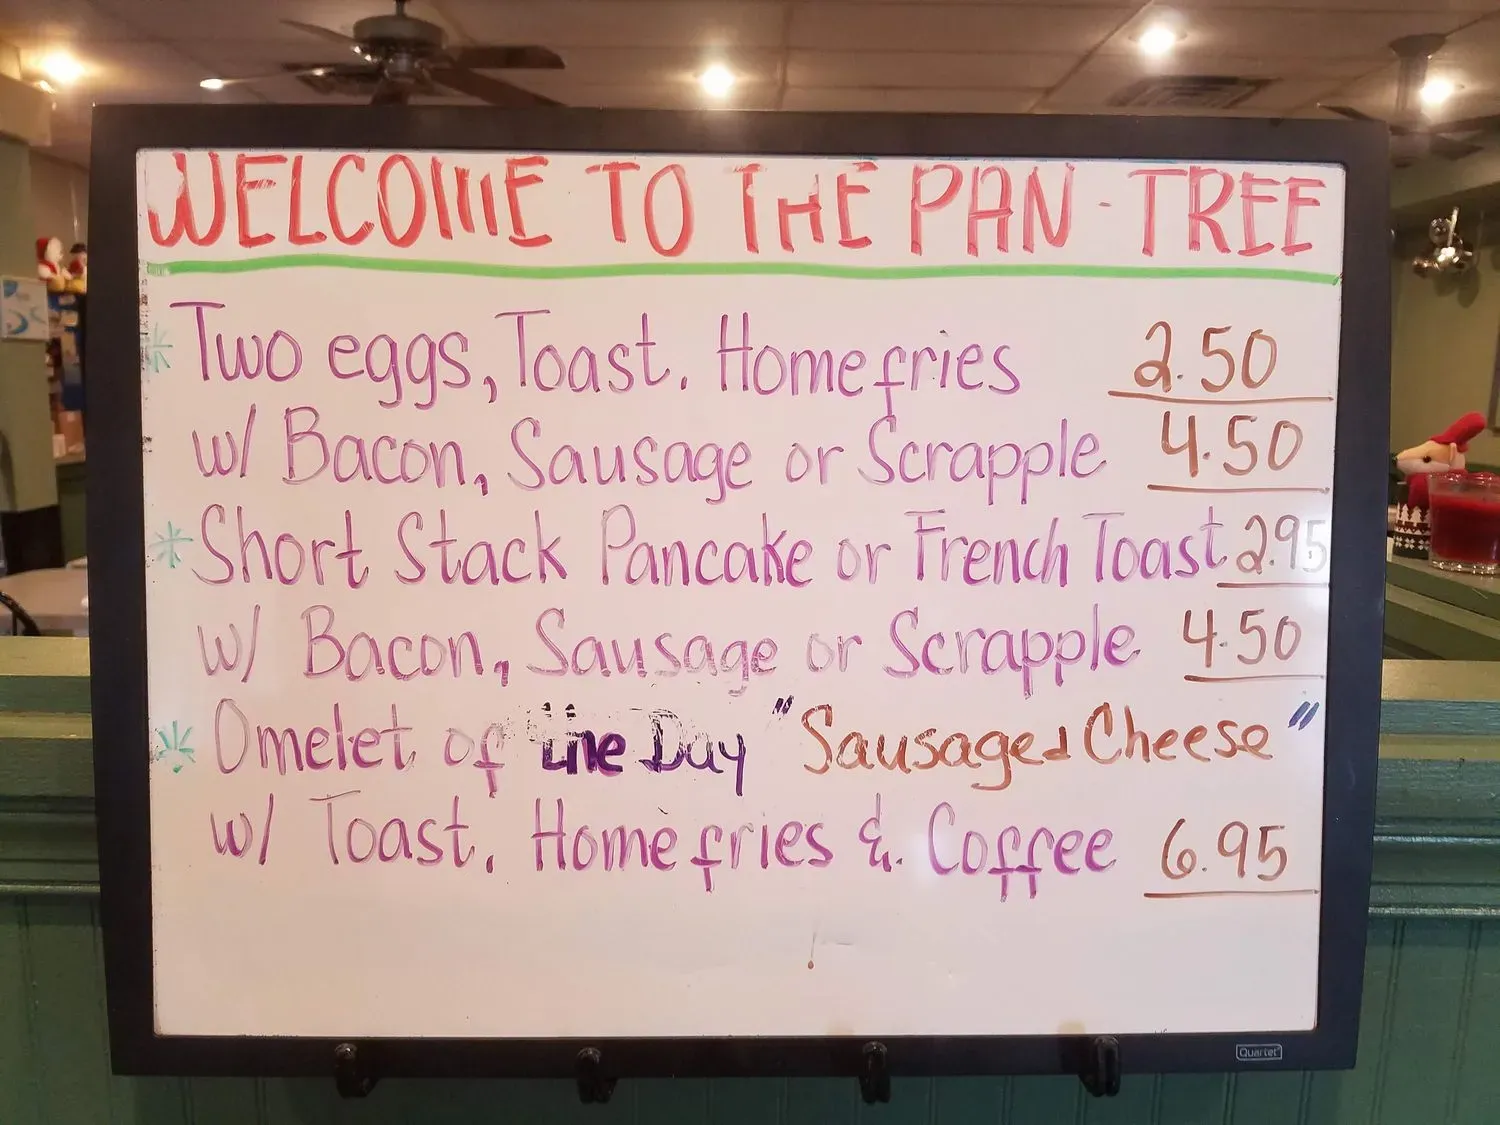 WELCOME TO THE PAN-TREE
* Two eggs, Toast. Homefries 2.50
w/ Bacon, Sausage or Scrapple 4.50
* Short Stack Pancake or French Toast 2.95
w/ Bacon, Sausage or Scrapple 4.50
* Omelet of the Day "Sausage & Cheese"
w/ Toast. Homefries &. Coffee 6.95
Quartet